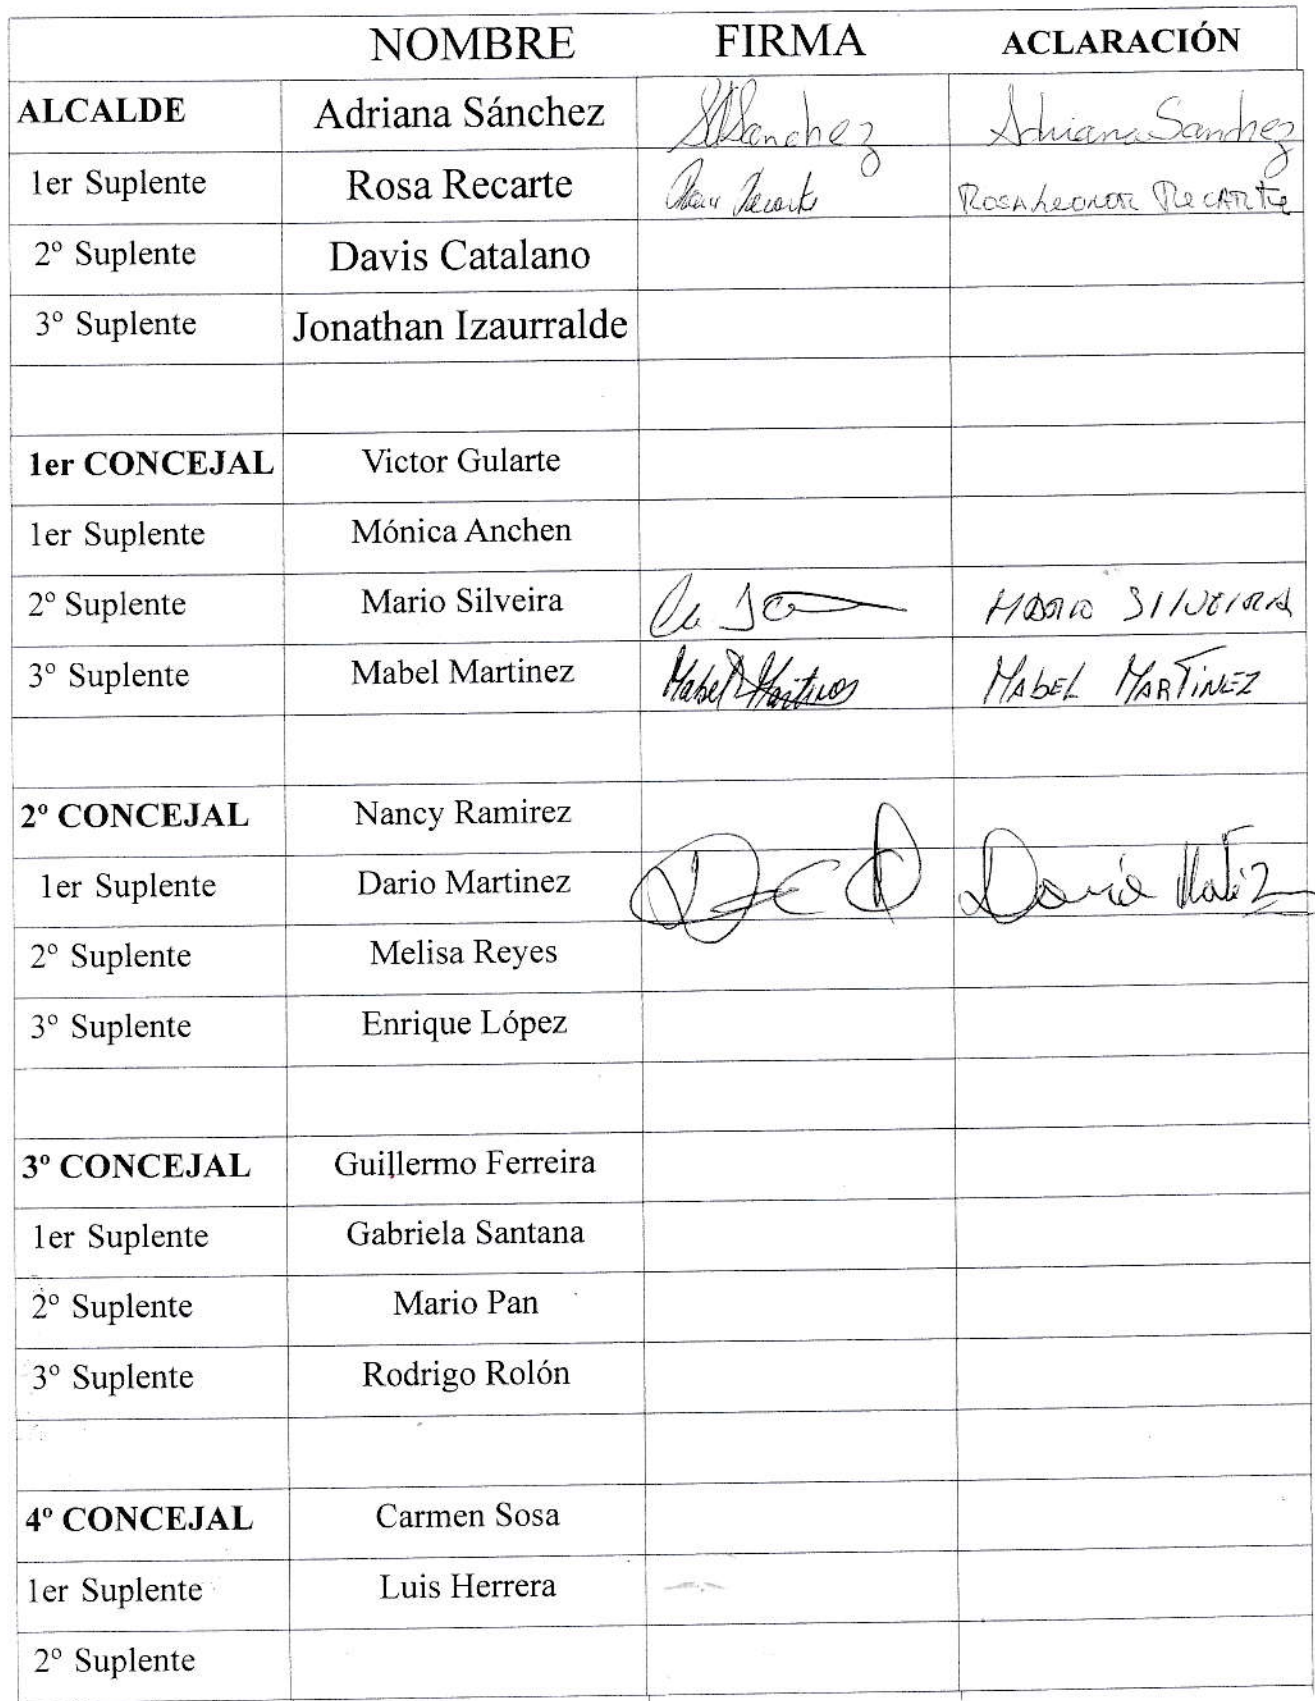 NOMBRE FIRMA ACLARACIÓN
ALCALDE Adriana Sánchez Sanchez Adriana Sanchez
1er Suplente Rosa Recarte Recarte Rosa Leonor Recarte
2º Suplente Davis Catalano
3º Suplente Jonathan Izaurralde
1er CONCEJAL Victor Gularte
1er Suplente Mónica Anchen
2º Suplente Mario Silveira MARIO SILVEIRA
3º Suplente Mabel Martinez Mabel Martinez MABEL MARTINEZ
2º CONCEJAL Nancy Ramirez
1er Suplente Dario Martinez Dario
2º Suplente Melisa Reyes
3º Suplente Enrique López
3º CONCEJAL Guillermo Ferreira
1er Suplente Gabriela Santana
2º Suplente Mario Pan
3º Suplente Rodrigo Rolón
4º CONCEJAL Carmen Sosa
1er Suplente Luis Herrera
2º Suplente